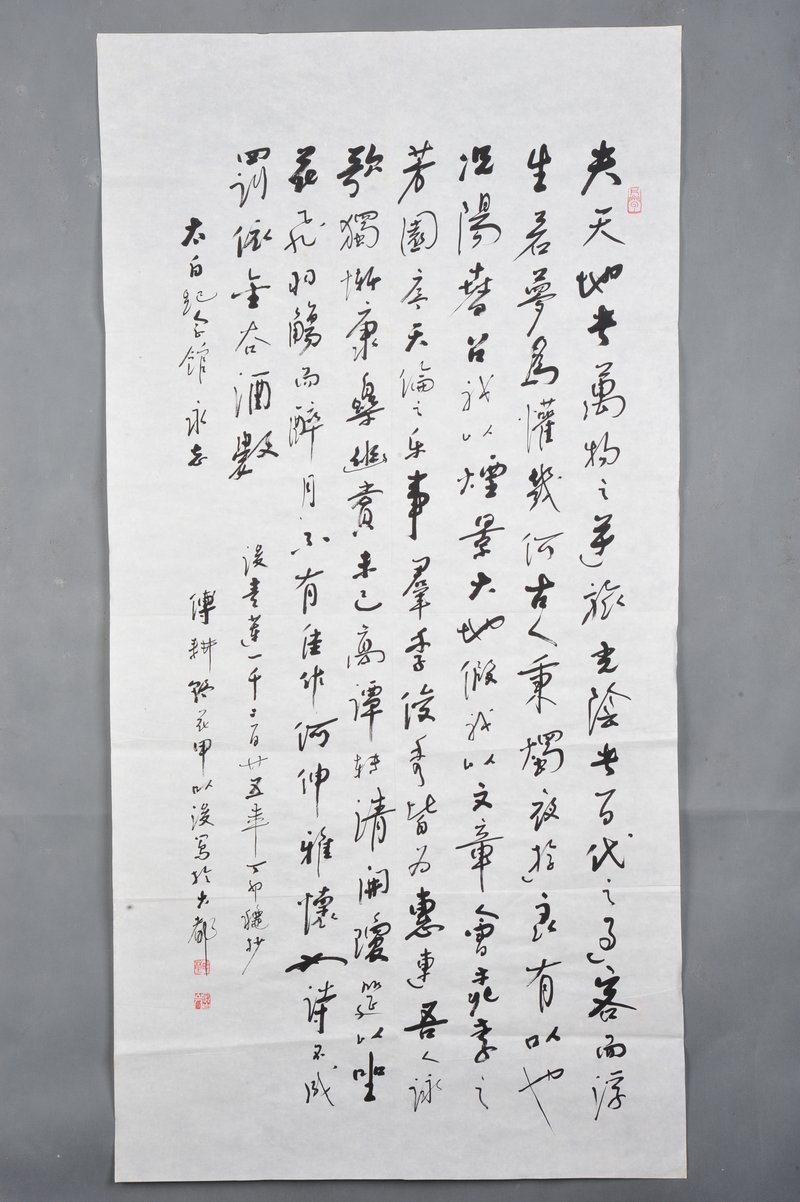 夫天地者萬物之逆旅光陰者百代之過客而浮
生若夢為懽幾何古人秉燭夜遊良有以也
況陽春召我以煙景大地假我以文章會桃李之
芳園序天倫之乐事羣季俊秀皆為惠連吾人詠
歌獨慚康樂幽賞未已高譚轉清開瓊筵以坐
花飛羽觴而醉月不有佳作何伸雅懷如詩不成
罰依金谷酒數
後青蓮一千二百廿五年丁卯穐抄
太白紀念館永志
傅耕野花甲以後寫於大都